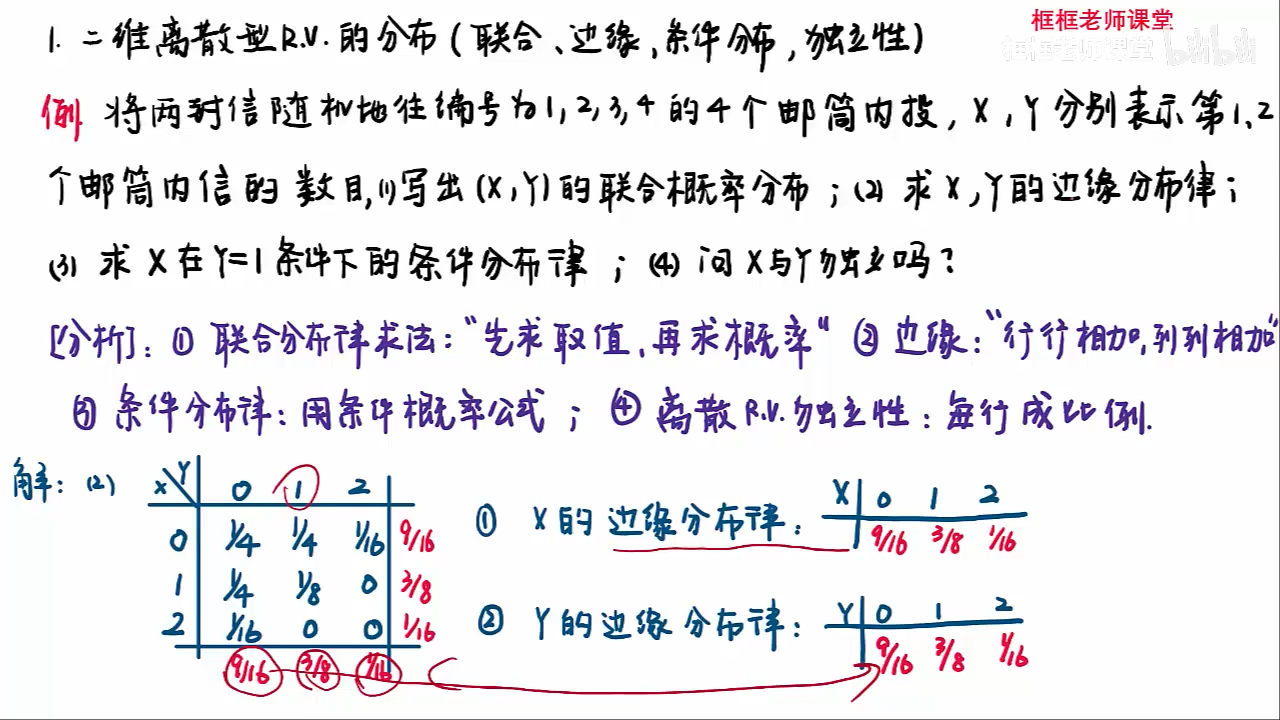 框框老师课堂
框框老师课堂 bilibili
1. 二维离散型R.V.的分布(联合、边缘、条件分布,独立性)
例 将两封信随机地往编号为1,2,3,4的4个邮筒内投,X,Y分别表示第1、2
个邮筒内信的数目,(1)写出(X,Y)的联合概率分布;(2)求X,Y的边缘分布律;
(3) 求X在Y=1条件下的条件分布律;(4) 问X与Y独立吗?
[分析]: ① 联合分布律求法:"先求取值,再求概率" ② 边缘:"行行相加,列列相加"
③ 条件分布律:用条件概率公式; ④ 离散R.V.独立性:每行成比例.
解: (2)
X Y 0 1 2
0 1/4 1/4 1/16 9/16
1 1/4 1/8 0 3/8
2 1/16 0 0 1/16
9/16 3/8 1/16
① X的边缘分布律:
X 0 1 2
9/16 3/8 1/16
② Y的边缘分布律:
Y 0 1 2
9/16 3/8 1/16